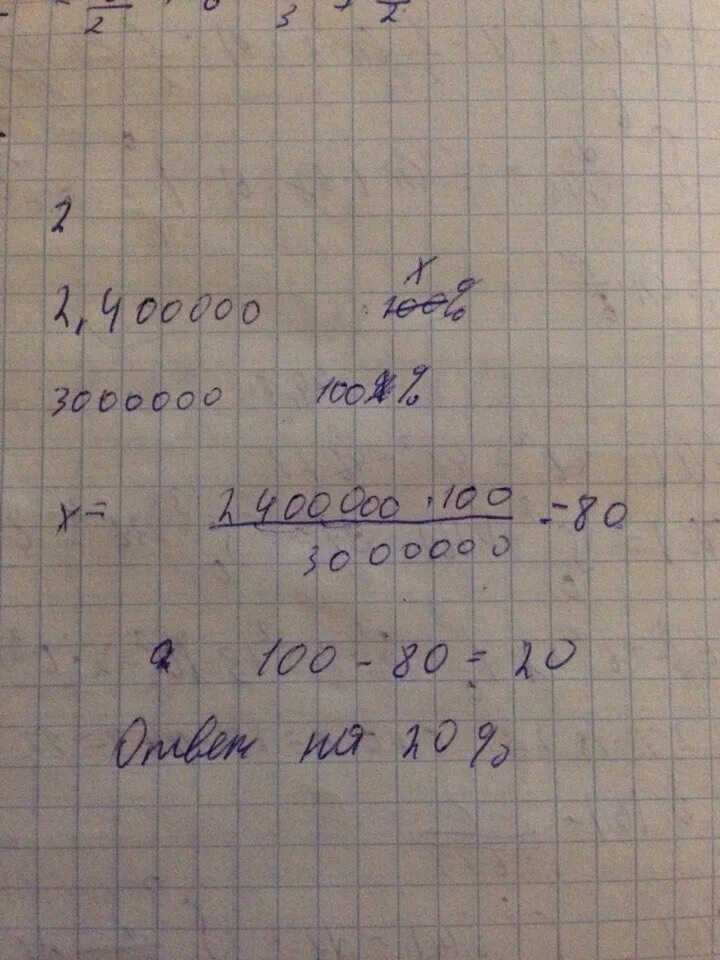 2
2,400000 x 100%
3000000 100%
x = 2400000 · 100 / 3000000 = 80
100 - 80 = 20
Ответ на 20%